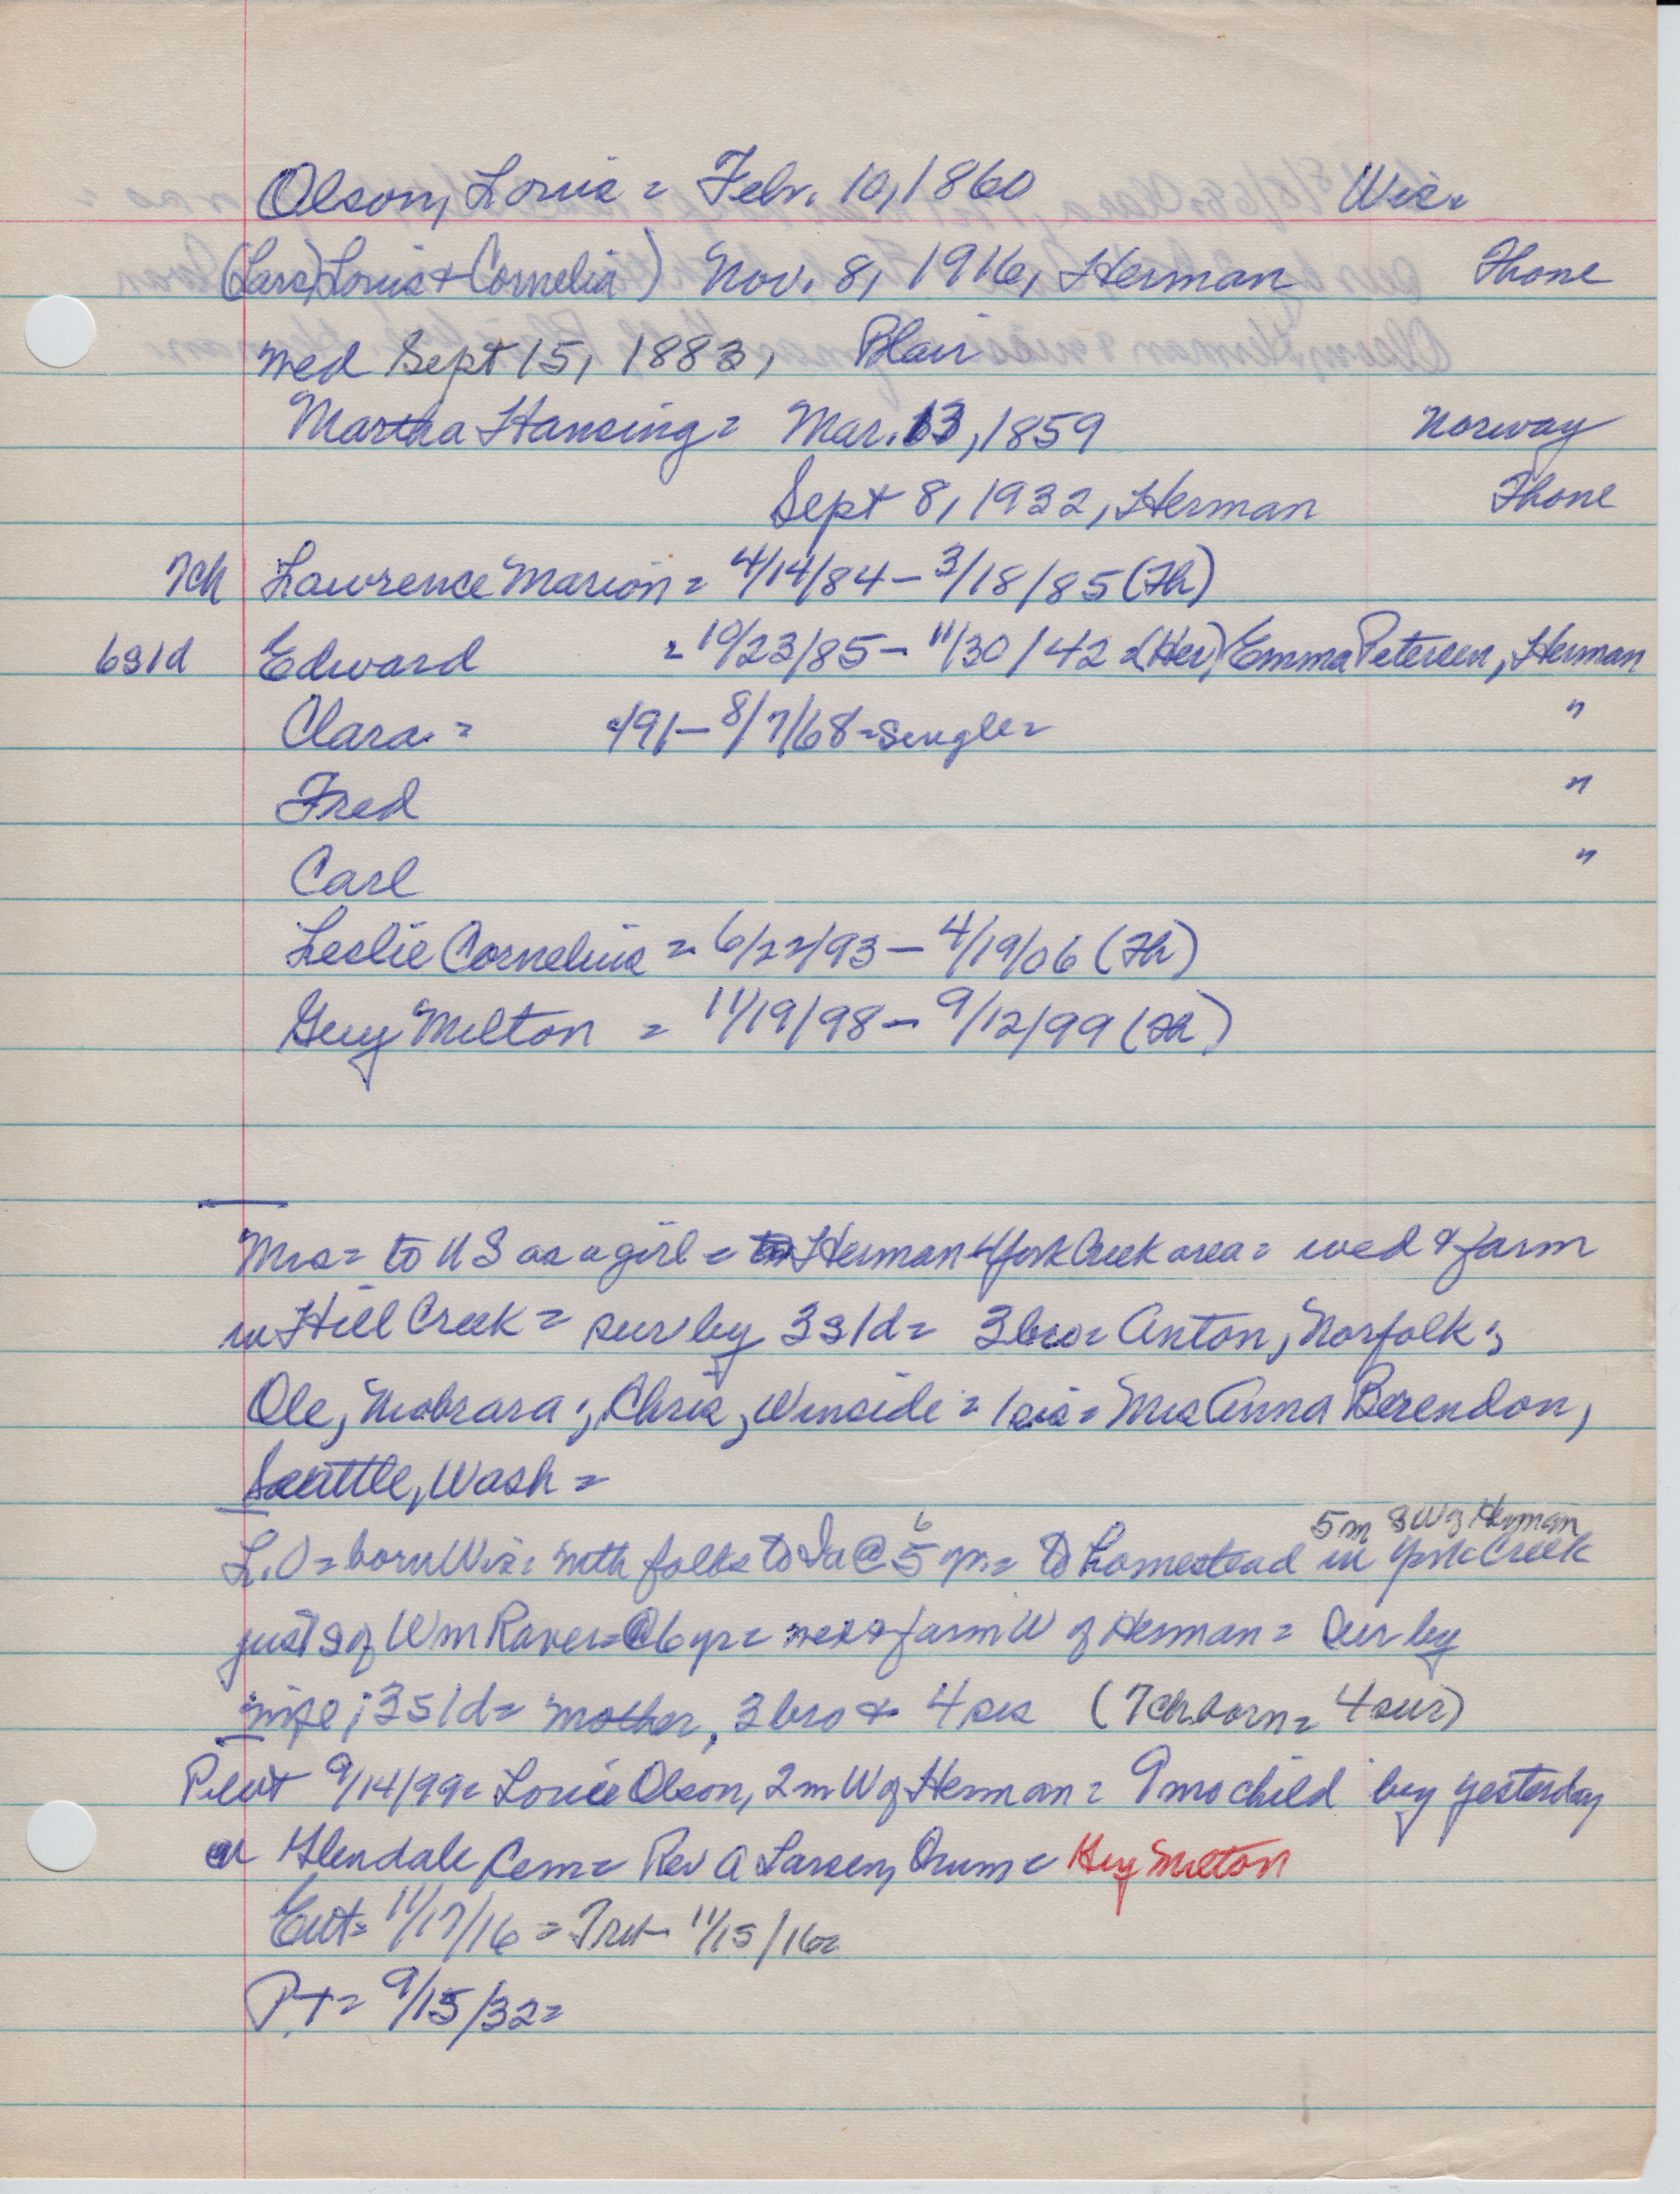 Olson, Louis = Febr. 10, 1860 Wis.
(Lars) Louis & Cornelia) Nov. 8, 1916, Herman Thone
wed Sept 15, 1883, Blair
Martha Hansing = Mar. 13, 1859 Norway
Sept 8, 1932, Herman Thone
7ch Lawrence Marion = 4/14/84 - 3/18/85 (Th)
6s1d Edward = 10/23/85 - 11/30/42 = (Her) Emma Petersen, Herman
Clara = /91 - 8/7/68 = single = "
Fred "
Carl "
Leslie Cornelius = 6/22/93 - 4/19/06 (Th)
Guy Milton = 11/19/98 - 9/12/99 (Th)
Mrs = to US as a girl = Herman York Creek area = wed & farm
in Hill Creek = sur by 3s1d = 3bro = Anton, Norfolk;
Ole, Niobrara; Chris, Winside = 1 sis = Mrs Anna Berendon,
Seattle, Wash =
L.O = born Wis: with folks to Ia @ 5 6 yr = to homestead in York Creek 5m SW of Herman
just S of Wm Raver = @ 6 yr = wed & farm W of Herman = Sur by
wife; 3s1d = mother, 3 bro & 4 sis (7ch born = 4 sur)
Pilot 9/14/99 = Louie Olson, 2m W of Herman = 9 mo child buy yesterday
at Glendale Cem = Rev A Larsen, Orum = Guy Milton
Ent = 11/17/16 = Trib 11/15/16 =
P.T = 9/15/32 =